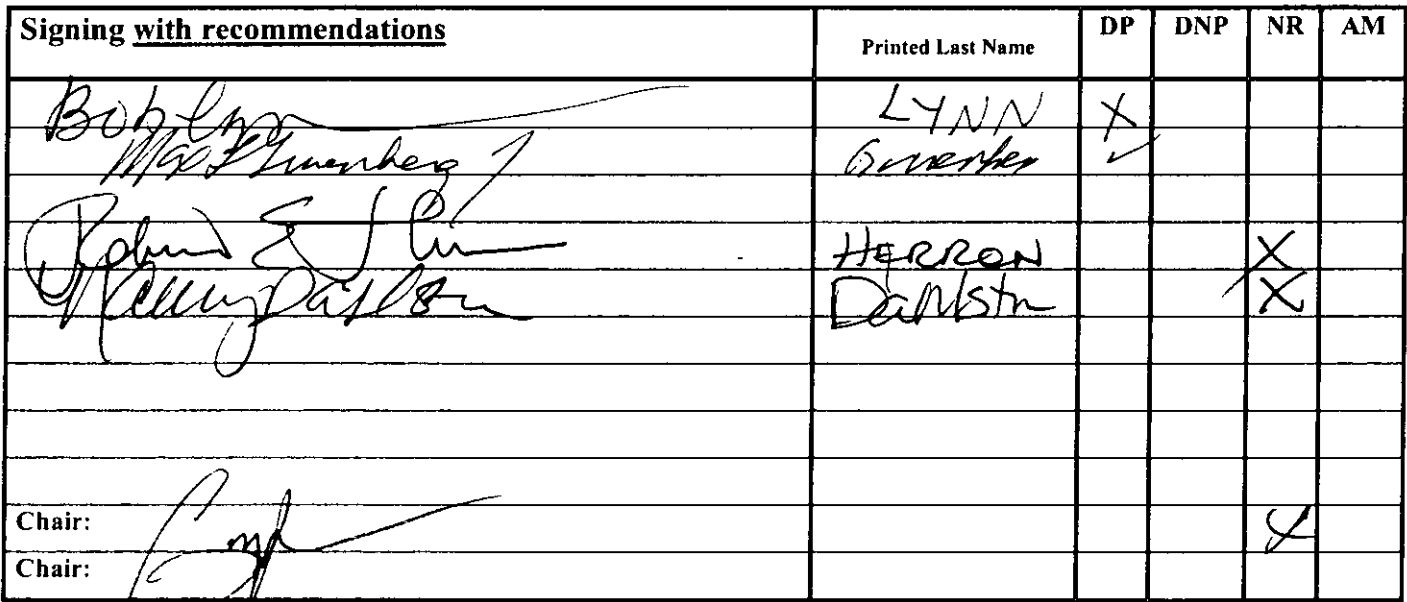 Signing with recommendations Printed Last Name DP DNP NR AM
Bob Lynn LYNN X
Max F Gruenberg ✓
HERRON X
Nancy Dahlstrom Dahlstm X
Chair: X
Chair: